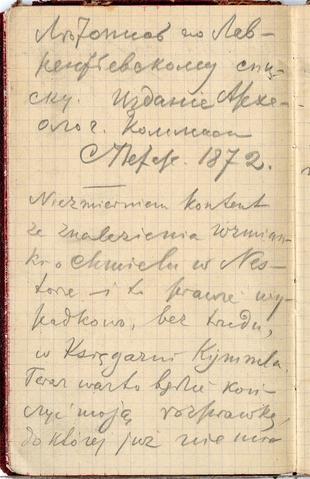 Лѣтопись по Лав-
рентьевскому спи-
ску. Изданіе Архе-
олог. Коммисси
СПетер. 1872.
Niezmiernie kontent
ze znalezienia wzmian-
ki o chmielu w Nes-
torze – i to prawie wy-
padkowo, bez trudu,
w Księgarni Kymmla.
Teraz warto będzie koń-
czyć moją rozprawkę,
do której już nie mia